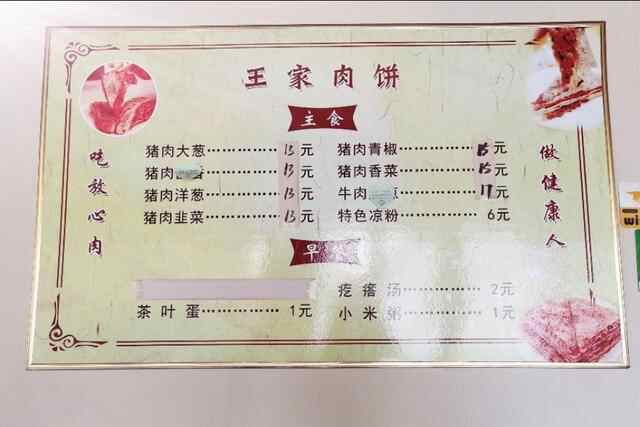 王家肉饼
主食
吃放心肉
做健康人
猪肉大葱 15元
猪肉 15元
猪肉洋葱 15元
猪肉韭菜 15元
猪肉青椒 15元
猪肉香菜 15元
牛肉 17元
特色凉粉 6元
早
茶叶蛋 1元
疙瘩汤 2元
小米粥 1元